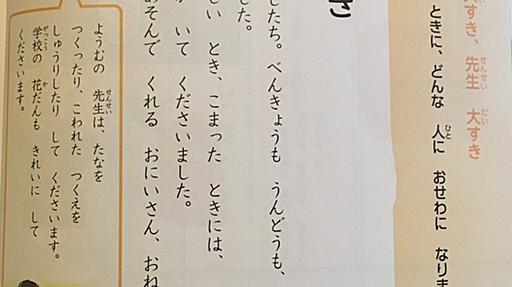 大すき、先生 大すき
ときに、どんな 人に おせわに なりま
さ
したち。べんきょうも うんどうも、
した。
しい とき、こまった ときには、
が いて くださいました。
あそんで くれる おにいさん、おね
ようむの 先生は、たなを
つくったり、こわれた つくえを
しゅうりしたり して くださいます。
学校の 花だんも きれいに して
くださいます。